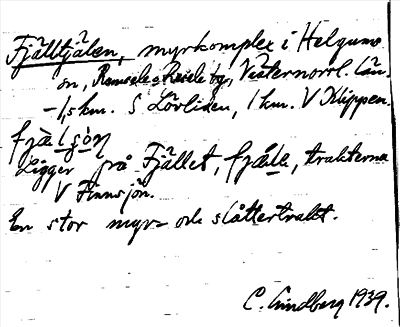 Fjälltjälen, myrkomplex i Helgums
sn, Ramsele o Resele tg, Västernorrl. län.
1,5 km. S Lövliden, 1 km. V Klippen.
Ligger på Fjället, fjäḷḷe, trakterna
V Finnsjön.
En stor myr- och slåttertrakt.
C. Lundberg 1939.